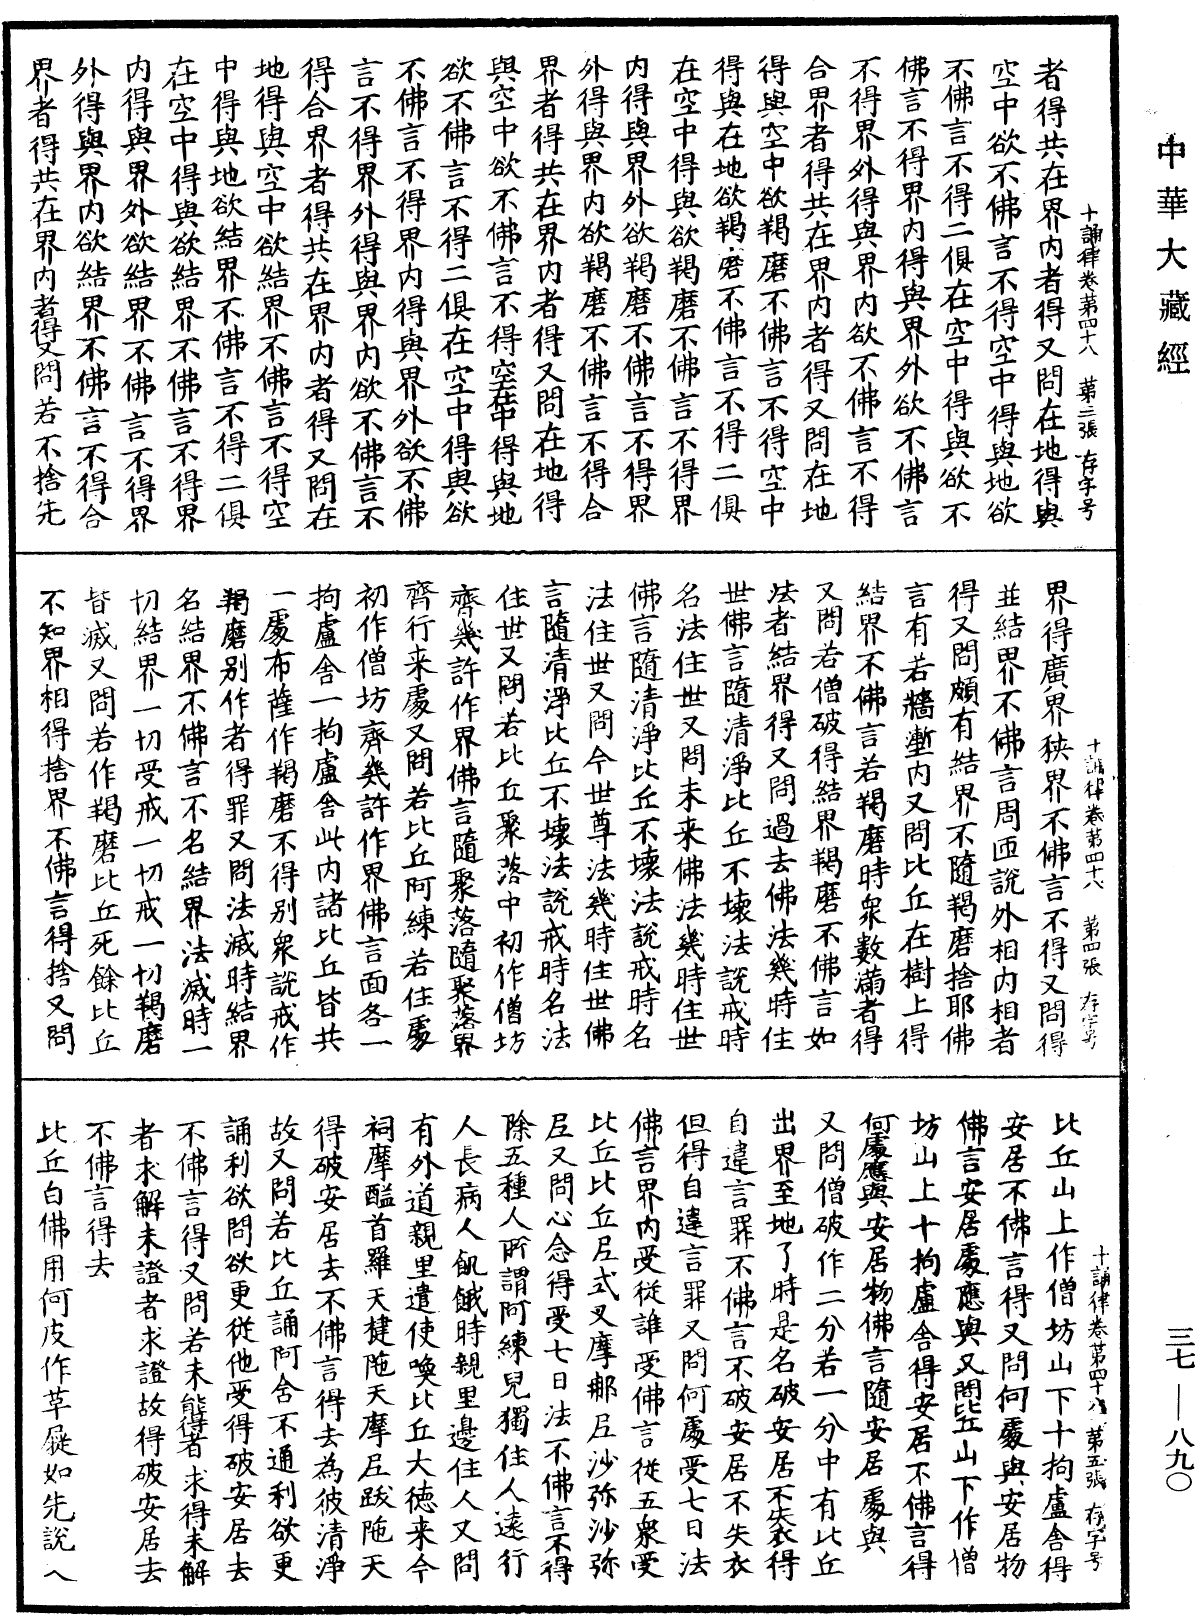 中華大藏經
三七—八九〇
十誦律卷第四十八 第三張 存字号
者得共在界内者得又問在地得與
空中欲不佛言不得空中得與地欲
不佛言不得二俱在空中得與欲不
佛言不得界内得與界外欲不佛言
不得界外得與界内欲不佛言不得
合界者得共在界内者得又問在地
得與空中欲羯磨不佛言不得空中
得與在地欲羯磨不佛言不得二俱
在空中得與欲羯磨不佛言不得界
内得與界外欲羯磨不佛言不得界
外得與界内欲羯磨不佛言不得合
界者得共在界内者得又問在地得
與空中欲不佛言不得空在中得與地
欲不佛言不得二俱在空中得與欲
不佛言不得界内得與界外欲不佛
言不得界外得與界内欲不佛言不
得合界者得共在界内者得又問在
地得與空中欲結界不佛言不得空
中得與地欲結界不佛言不得二俱
在空中得與欲結界不佛言不得界
内得與界外欲結界不佛言不得界
外得與界内欲結界不佛言不得合
界者得共在界内者得又問若不捨先
十誦律卷第四十八 第四張 存字号
界得廣界狹界不佛言不得又問得
並結界不佛言周匝說外相内相者
得又問頗有結界不隨羯磨捨耶佛
言有若牆壍内又問比丘在樹上得
結界不佛言若羯磨時衆數滿者得
又問若僧破得結界羯磨不佛言如
法者結界得又問過去佛法幾時住
世佛言隨清淨比丘不壞法說戒時
名法住世又問未来佛法幾時住世
佛言隨清淨比丘不壞法說戒時名
法住世又問今世尊法幾時住世佛
言隨清淨比丘不壞法說戒時名法
住世又問若比丘聚落中初作僧坊
齊幾許作界佛言隨聚落隨聚落界
齊行来處又問若比丘阿練若住處
初作僧坊齊幾許作界佛言面各一
拘盧舍一拘盧舍此内諸比丘皆共
一處布薩作羯磨不得別衆說戒作
羯磨別作者得罪又問法滅時結界
名結界不佛言不名結界法滅時一
切結界一切受戒一切戒一切羯磨
皆滅又問若作羯磨比丘死餘比丘
不知界相得捨界不佛言得捨又問
十誦律卷第四十八 第五張 存字号
比丘山上作僧坊山下十拘盧舍得
安居不佛言得又問何處與安居物
佛言安居處應與又問比丘山下作僧
坊山上十拘盧舍得安居不佛言得
何處應與安居物佛言隨安居處與
又問僧破作二分若一分中有比丘
出界至地了時是名破安居不失衣得
自違言罪不佛言不破安居不失衣
但得自違言罪又問何處受七日法
佛言界内受從誰受佛言從五衆受
比丘比丘尼式叉摩那尼沙弥沙弥
尼又問心念得受七日法不佛言不得
除五種人所謂阿練兒獨住人遠行
人長病人飢餓時親里邊住人又問
有外道親里遣使喚比丘大德来今
祠摩醯首羅天揵陁天摩尼跋陁天
得破安居去不佛言得去為彼清淨
故又問若比丘誦阿舍不通利欲更
誦利欲問欲更從他受得破安居去
不佛言得又問若未能得者求得未解
者求解未證者求證故得破安居去
不佛言得去
比丘白佛用何皮作草屣如先說八